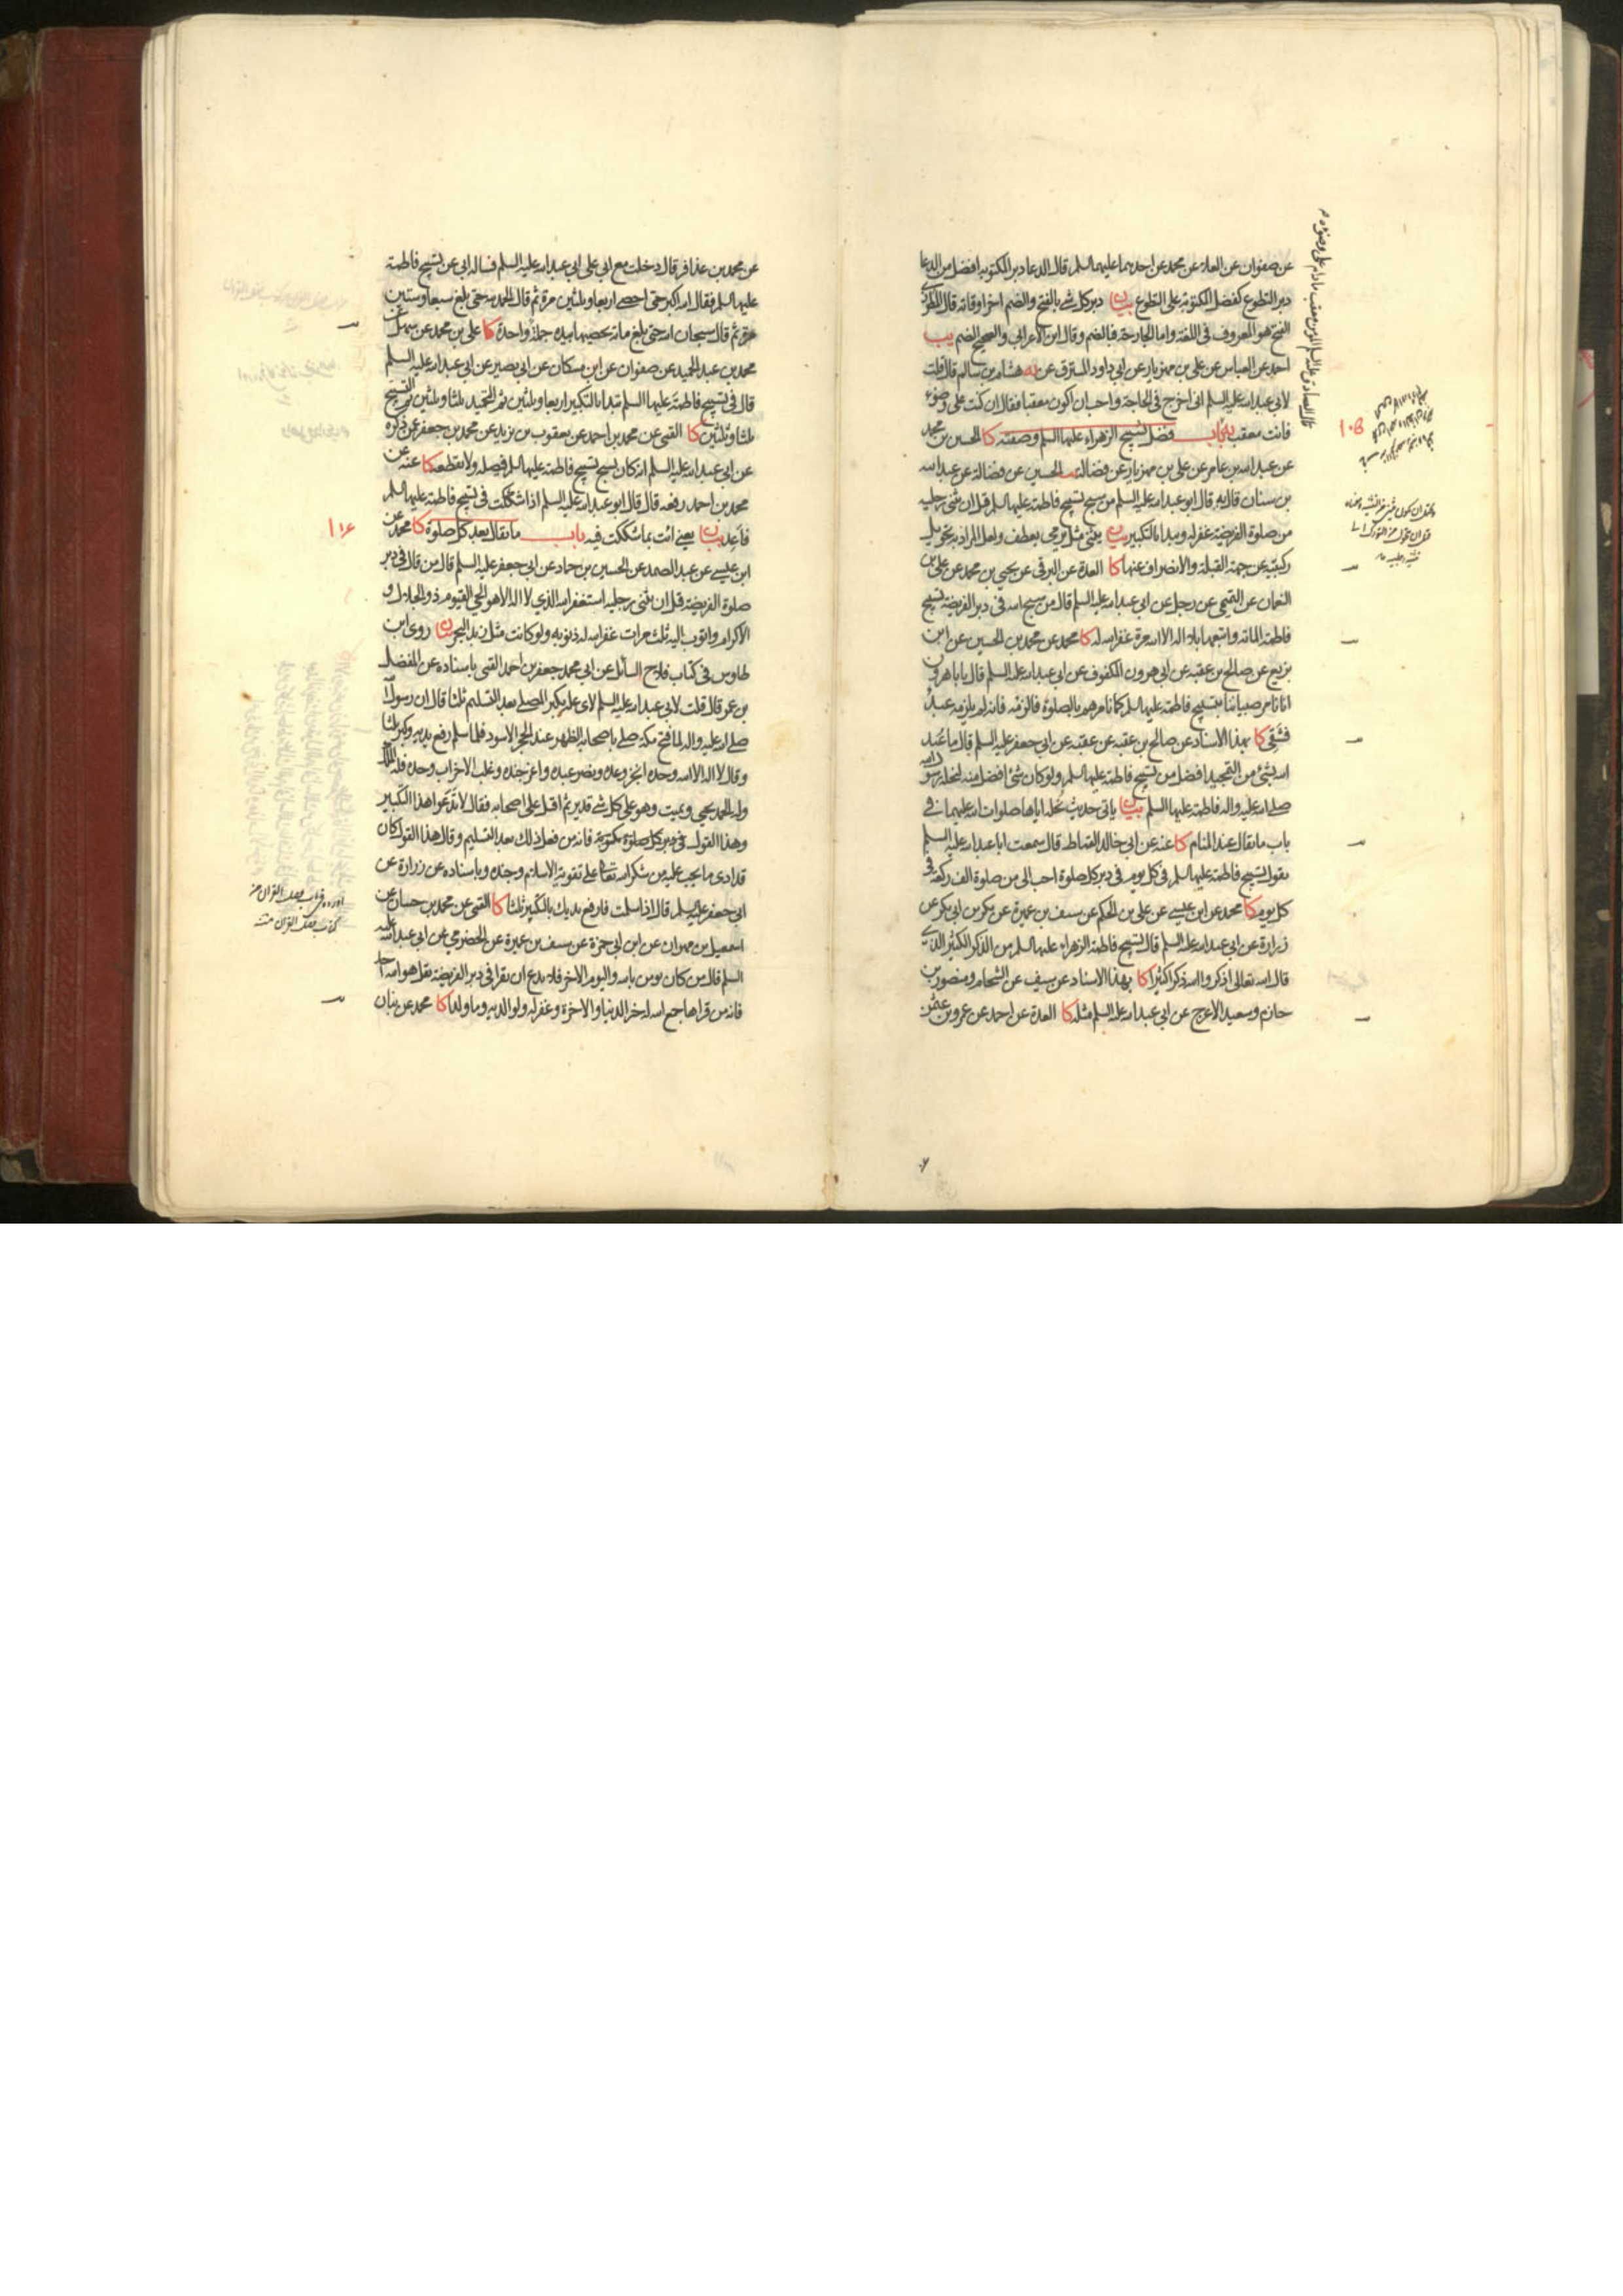 عن صفوان عن العلاء عن محمد عن احدهما عليهما السلم قال الدعا دبر المكتوبة افضل من الدعا
دبر التطوع كفضل المكتوبة على التطوع بيان دبر كل شي بالفتح والضم اخر اوقاته قال المطرزي
الفتح هو المعروف في اللغة واما الجارحة فبالضم وقال ابن الاعرابي والصحيح الضم يب
احمد عن العباس عن علي بن مهزيار عن ابي داود المسترق عن يه هشام بن سالم قال قلت
لابي عبد الله عليه السلم اني اخرج في الحاجة واحب ان اكون معقبا فقال ان كنت على وضوء
فانت معقب باب فضل تسبيح الزهراء عليها السلم وصفته كا الحسين بن محمد
عن عبد الله بن عامر عن علي بن مهزيار عن فضالة يب الحسين عن فضالة عن عبد الله
بن سنان قال قال ابو عبد الله عليه السلم من سبح تسبيح فاطمة عليها السلم قبل ان يثني رجليه
من صلوة الفريضة غفر له ويبدا بالتكبير بيان يثني مثل يرمي يعطف ولعل المراد به تحويل
ركبتيه عن جهة القبلة والانصراف عنها كا العدة عن البرقي عن يحيى بن محمد عن علي بن
النعمان عن التميمي عن رجل عن ابي عبد الله عليه السلم قال من سبح الله في دبر الفريضة تسبيح
فاطمة المائة واتبعها بلا اله الا الله مرة غفر الله له كا محمد عن محمد بن الحسين عن ابن
بزيع عن صالح بن عقبه عن ابي هرون المكفوف عن ابي عبد الله عليه السلم قال يا با هرون
انا نامر صبياننا بتسبيح فاطمة عليها السلم كما نامرهم بالصلوة فالزمه فانه لم يلزمه عبد
فشقي كا بهذا الاسناد عن صالح بن عقبه عن عقبه عن ابي جعفر عليه السلم قال ما عبد
الله بشئ من التمجيد افضل من تسبيح فاطمة عليها السلم ولو كان شئ افضل منه لنحله رسول الله
صلى الله عليه واله فاطمة عليها السلم بيان ياتي حديث نحله اياها صلوات الله عليهما في
باب ما يقال عند المنام كا عنه عن ابي خالد القماط قال سمعت ابا عبد الله عليه السلم
يقول تسبيح فاطمة عليها السلم في كل يوم في دبر كل صلوة احب الى من صلوة الف ركعة في
كل يوم كا محمد عن ابن عيسى عن علي بن الحكم عن سيف بن عميرة عن بكر بن ابي بكر عن
زرارة عن ابي عبد الله عليه السلم قال تسبيح فاطمة الزهراء عليها السلم من الذكر الكثير الذي
قال الله تعالى اذكروا الله ذكرا كثيرا كا بهذا الاسناد عن سيف عن الشحام ومنصور بن
حازم وسعيد الاعرج عن ابي عبد الله عليه السلم مثله كا العدة عن احمد عن عمرو بن عثمن
قال الصادق عليه السلم المؤمن معقب ما دام على وضوءه
١٠٥
عن محمد بن عذافر قال دخلت مع ابي على ابي عبد الله عليه السلم فساله ابي عن تسبيح فاطمة
عليها السلم فقال الله اكبر حتى احصى اربعا وثلثين مرة ثم قال الحمد لله حتى بلغ سبعا وستين
مرة ثم قال سبحان الله حتى بلغ مائة يحصيها بيده جملة واحدة كا علي بن محمد عن سهل عن
محمد بن عبد الحميد عن صفوان عن ابن مسكان عن ابي بصير عن ابي عبد الله عليه السلم
قال في تسبيح فاطمة عليها السلم تبدا بالتكبير اربعا وثلثين ثم التحميد ثلثا وثلثين ثم التسبيح
ثلثا وثلثين كا القمي عن محمد بن احمد عن يعقوب بن يزيد عن محمد بن جعفر عمن ذكره
عن ابي عبد الله عليه السلم انه كان يسبح تسبيح فاطمة عليها السلم فيصله ولا يقطعه كا عنه عن
محمد بن احمد رفعه قال قال ابو عبد الله عليه السلم اذا شككت في تسبيح فاطمة عليها السلم
فاعد بيان يعني ائت بما شككت فيه باب ما يقال بعد كل صلوة كا محمد عن
ابن عيسى عن عبد الصمد عن الحسين بن حماد عن ابي جعفر عليه السلم قال من قال في دبر
صلوة الفريضة قبل ان يثني رجليه استغفر الله الذي لا اله الا هو الحي القيوم ذو الجلال و
الاكرام واتوب اليه ثلث مرات غفر الله له ذنوبه ولو كانت مثل زبد البحر بيان روى ابن
طاوس في كتاب فلاح السائل عن ابي محمد جعفر بن احمد القمي باسناده عن المفضل
بن عمر قال قلت لابي عبد الله عليه السلم لاي علة يكبر المصلي بعد التسليم ثلثا قال ان رسول الله
صلى الله عليه واله لما فتح مكة صلى باصحابه الظهر عند الحجر الاسود فلما سلم رفع يديه وكبر ثلثا
وقال لا اله الا الله وحده انجز وعده ونصر عبده واعز جنده وغلب الاحزاب وحده فله الملك
وله الحمد يحيي ويميت وهو على كل شي قدير ثم اقبل على اصحابه فقال لا تدعوا هذا التكبير
وهذا القول في دبر كل صلوة مكتوبة فانه من فعل ذلك بعد التسليم وقال هذا القول كان
قد ادى ما يجب عليه من شكر الله تعالى على تقوية الاسلام وجنده وباسناده عن زرارة عن
ابي جعفر عليه السلم قال اذا سلمت فارفع يديك بالتكبير ثلثا كا القمي عن محمد بن حسان عن
اسمعيل بن مهران عن ابن ابي حمزة عن سيف بن عميرة عن الحضرمي عن ابي عبد الله عليه
السلم قال من كان يومن بالله واليوم الاخر فلا يدع ان يقرا في دبر الفريضة بقل هو الله احد
فانه من قراها جمع الله له خير الدنيا والاخرة وغفر له ولوالديه وما ولدا كا محمد عن بنان
١٠٦